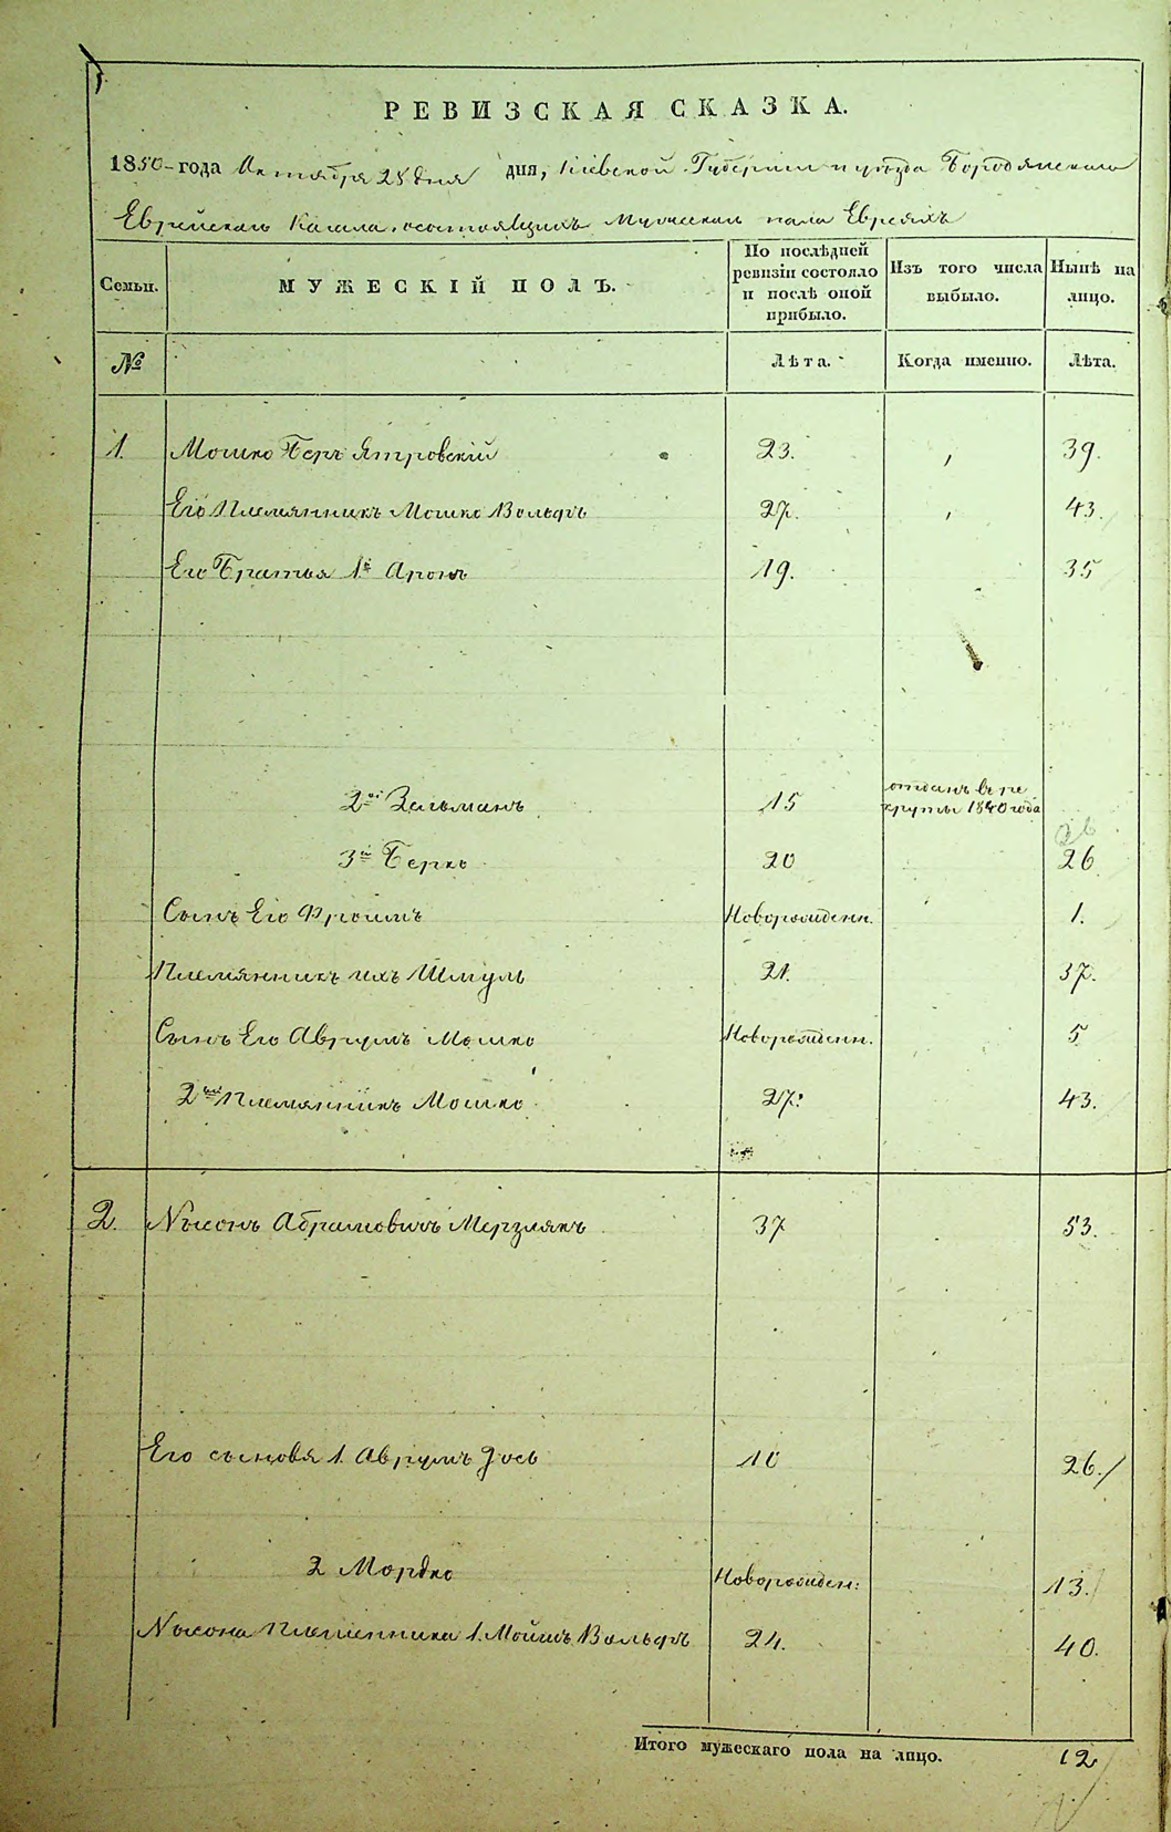 РЕВИЗСКАЯ СКАЗКА.
1850-года Октября 28 дня дня, Кіевской Губерніи и уѣзда Бородянскаго
Еврейскаго Кагала, состоящихъ Мужескаго пола Евреяхъ
Семьи.
МУЖЕСКІЙ ПОЛЪ.
По послѣдней ревизіи состояло и послѣ оной прибыло.
Изъ того числа выбыло.
Нынѣ на лицо.
№
Лѣта.
Когда именно.
Лѣта.
1. Мошко Беръ Ятровскій 23. 39.
Его Племянникъ Мошко Вольфъ 27. 43.
Его Братья 1й Аронъ 19. 35
2ой Зельманъ 15 отданъ въ рекруты 1840 года
3й Берко 20 26
Сынъ Его Фроимъ Новорожденн. 1.
Племянникъ ихъ Шмуль 21. 37.
Сынъ Его Аврумъ Мошко Новорожденн. 5
2ой Племянникъ Мошко 27. 43.
2. Абрамовичъ Мерзлякъ 37 53.
Его сыновья 1. Аврумъ Іось 10 26.
2 Мордко Новорожден: 13.
Племенники 1. Мойшъ Вольфъ 24. 40.
Итого мужескаго пола на лицо. 12